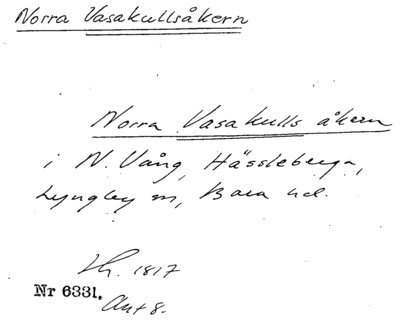 Norra Vasakullsåkern
Norra Vasakulls åkern
i N. Vång, Hässleberga,
Lyngby sn, Bara hd.
Lh. 1817
Nr 6331. Akt 8.